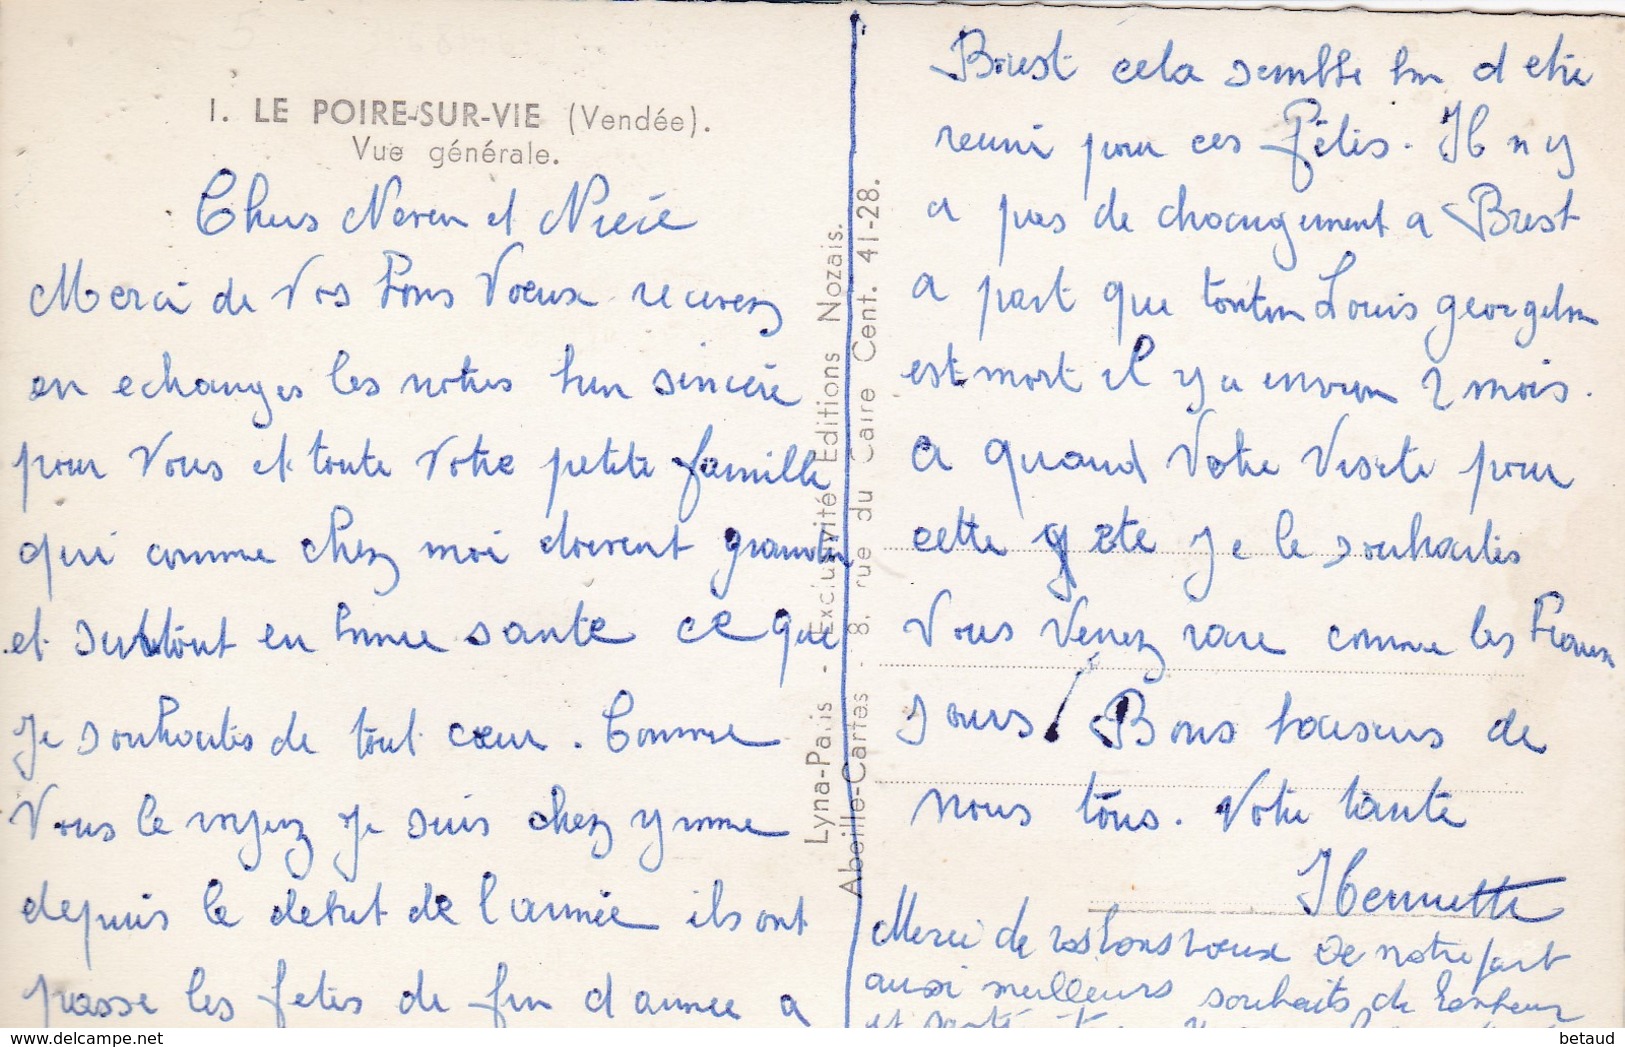 1. LE POIRE-SUR-VIE (Vendée).
Vue générale.
Chers Neveu et Nièce
Merci de Vos bons Voeux recevez
en echanges les notres bien sincère
pour Vous et toute Votre petite famille
qui comme chez moi doivent grandir
et surtout en bonne santé ce que
je souhaites de tout cœur. Comme
Vous le voyez je suis chez yvonne
depuis le debut de l'année ils ont
passe les fetes de fin d'année a
Lyna-Paris - Exclusivité Editions Nozais.
Abeille-Cartes - 8, rue du Caire Cent. 41-28.
Brest cela semble bon d etre
reuni pour ces fêtes. Il n y
a pas de changement a Brest
a part que tonton Louis georgelin
est mort il y a environ 2 mois.
a quand Votre Visite pour
cette été je le souhaites
Vous Venez rare comme les beaux
jours! Bons baisers de
nous tous. Votre tante
Hennette
Merci de vos bons voeux de notre part
aussi meilleurs souhaits de bonheur
et santé
delcampe.net
betaud